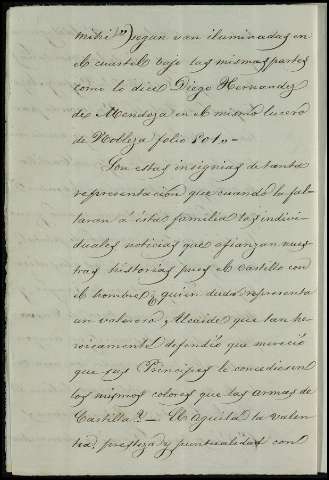 mitri") segun van iluminadas en
el cuartel bajo las mismas partes
como lo dice Diego Hernandez
de Mendoza en el mismo lucero
de Nobleza folio 801.-
Son estas insignias de tanta
representacion que cuando le fal-
taran á ésta familia las indivi-
duales noticias que afianzan nues-
tras historias pues el Castillo con
el hombre ¿quien duda representa
un valeroso Alcaide que tan he-
roicamente defendió que mereció
que sus Principes le concediesen
los mismos colores que las armas de
Castilla? - El Aguila la valen-
tia, presteza y puntualidad con